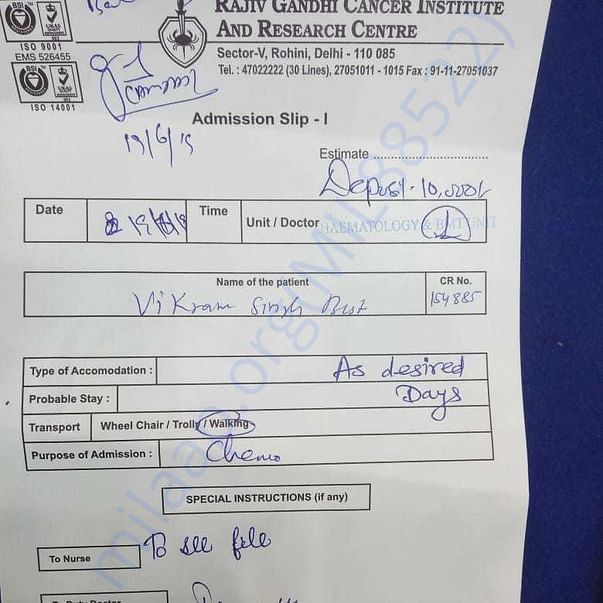 RAJIV GANDHI CANCER INSTITUTE
AND RESEARCH CENTRE
Sector-V, Rohini, Delhi - 110 085
Tel. : 47022222 (30 Lines), 27051011 - 1015 Fax : 91-11-27051037
BSI UKAS
ISO 9001
EMS 526455
BSI UKAS
ISO 14001
Admission Slip - I
19/6/19
Estimate
Deposit - 10,000/-
Date 19/6/19 Time Unit / Doctor HAEMATOLOGY & BMT UNIT 1
Name of the patient CR No.
Vikram Singh Bist 154885
Type of Accomodation : As desired
Probable Stay : Days
Transport Wheel Chair / Trolly / Walking
Purpose of Admission : Chemo
SPECIAL INSTRUCTIONS (if any)
To Nurse To see file
milaap.org(MIL88522)